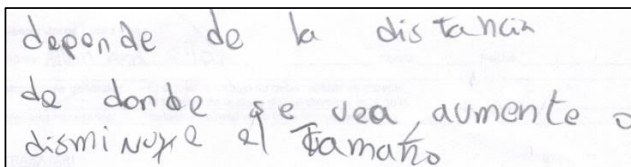 depende de la distancia
de donde se vea, aumente o
disminuye el tamaño